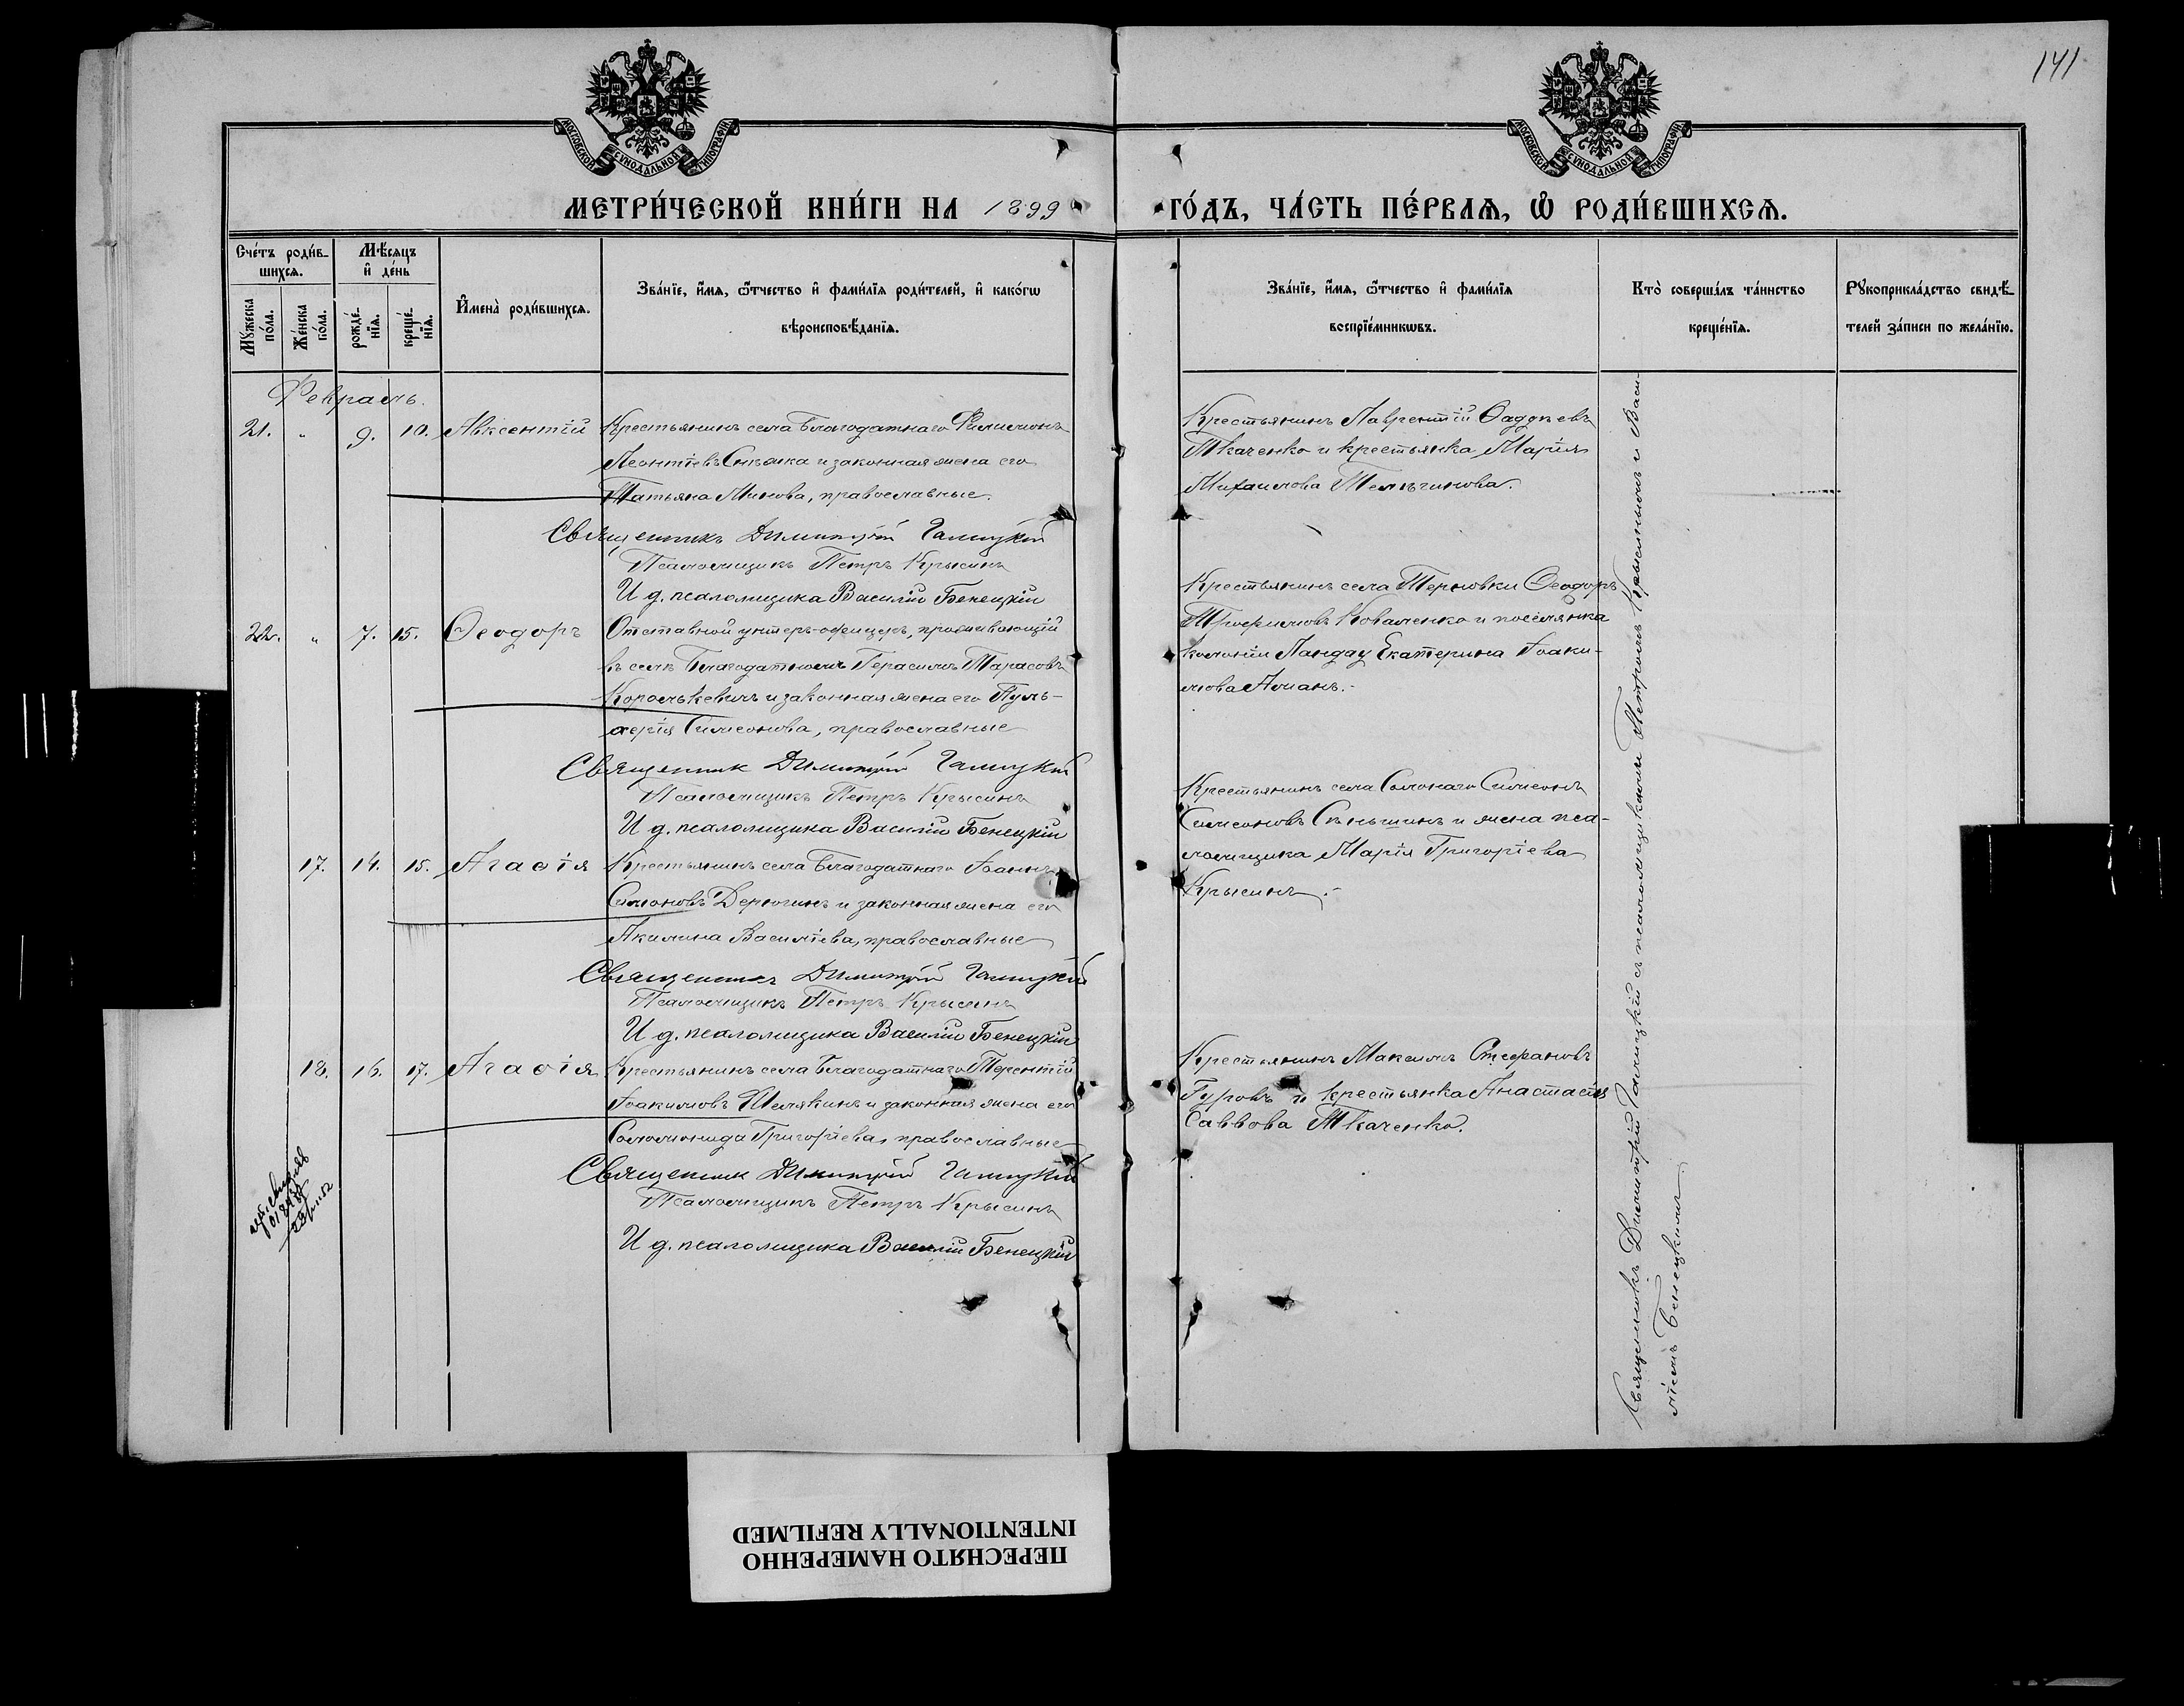 141
МОСКОВСКОЙ СУНОДАЛЬНОЙ ТИПОГРАФIИ
МОСКОВСКОЙ СУНОДАЛЬНОЙ ТИПОГРАФIИ
МЕТРИ́ЧЕСКОЙ КНИ́ГИ НА 1899 ГО́ДЪ, ЧА́СТЬ ПЕ́РВАѦ, Ѽ РОДИ́ВШИХСѦ.
Сче́тъ роди́в-
шихсѧ.
Мꙋ́жеска по́ла.
Же́нска по́ла.
Мѣ́сѧцъ
и҆ де́нь
рожде́-
нїѧ.
креще́-
нїѧ.
И҆мена̀ роди́вшихсѧ.
Зва́нїе, и҆́мѧ, ѻ҆́тчество и҆ фами́лїѧ роди́телей, и҆ како́гѡ
вѣроисповѣ́данїѧ.
Зва́нїе, и҆́мѧ, ѻ҆́тчество и҆ фами́лїѧ
воспрїе́мникѡвъ.
Кто̀ соверша́лъ та́инство
креще́нїѧ.
Рꙋкоприкла́дство свидѣ́-
телей за́писи по жела́нїю.
Февраль.
21. " 9. 10. Авксентій Крестьянинъ села Благодатнаго Филимонъ
Леонтіевъ и законная жена его
Татьяна Минова, православные.
Священникъ Димитрій Галицкій
Псаломщикъ Петръ Крысинъ
И д. псаломщика Василій Бенецкій
Крестьянинъ Лаврентій Фаддѣевъ
Ткаченко и крестьянка Марія
Михаилова Тельгинова.
22. " 7. 15. Ѳеодоръ Отставной унтеръ-офицеръ, проживающій
въ селѣ Благодатномъ Герасимъ Тарасовъ
Королькевичъ и законная жена его Пуль-
херія Симеонова, православные
Священник Димитрій Галицкій
Псаломщикъ Петръ Крысинъ
И д. псаломщика Василій Бенецкій
Крестьянинъ села Терновки Ѳеодоръ
Трофимовъ Коваленко и поселянка
колоніи Ландау Екатерина Іоаки-
мова Аманъ.
17. 14. 15. Агаѳія Крестьянинъ села Благодатнаго Іоаннъ
Симоновъ Дерюгинъ и законная жена его
Акилина Василіева, православные
Священникъ Димитрій Галицкій
Псаломщикъ Петръ Крысинъ
И д. псаломщика Василій Бенецкій
Крестьянинъ села Солонаго Симеонъ
Симеоновъ Сѣньшинъ и жена пса-
ломщика Марія Григоріева
Крысинъ.
18. 16. 17. Агаѳія Крестьянинъ села Благодатнаго Терентій
Іоакимовъ Шелякинъ и законная жена его
Соломонида Григоріева, православные
Священник Димитрій Галицкій
Псаломщикъ Петръ Крысинъ
И д. псаломщика Василій Бенецкій
Крестьянинъ Максимъ Стефановъ
Гуровъ и крестьянка Анастасія
Саввова Ткаченко.
Священникъ Димитрій Галицкій съ псаломщиками Петромъ Крысинымъ и Васи-
ліемъ Бенецкимъ
ПЕРЕСНЯТО НАМЕРЕННО
INTENTIONALLY REFILMED